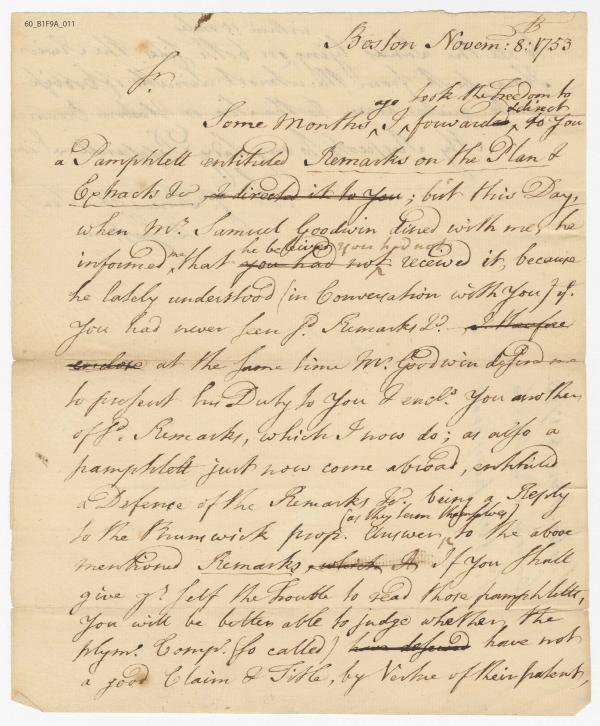 60_B1F9A_011
Boston Novem: 8:th 1753
Sr.
Some Months ago, I took the freedom to
forward & direct to You
a Pamphlett entituled Remarks on the Plan &
Extracts &c, I directed it to You; but this Day,
when Mr. Samuel Goodwin dined with me, he
informed me that he believed you had not
you had not received it, because
he lately understood (in Conversation with You) yt.
You had never seen sd. Remarks &c. I therefore
enclose at the same time Mr. Goodwin desired me
to present his Duty to You & encl.d You another
of sd. Remarks, which I now do; as also a
pamphlett just now come abroad, entituled
a Defence of the Remarks &c. being a Reply
to the Brunswick prop.rs Answer (as they term themselves) to the above
mentioned Remarks, which If You shall
give yr. self the Trouble to read those pamphletts,
You will be better able to judge whether the
plymo. Compa. (so called) have not
a good Claim & Title, by Vertue of their patent,